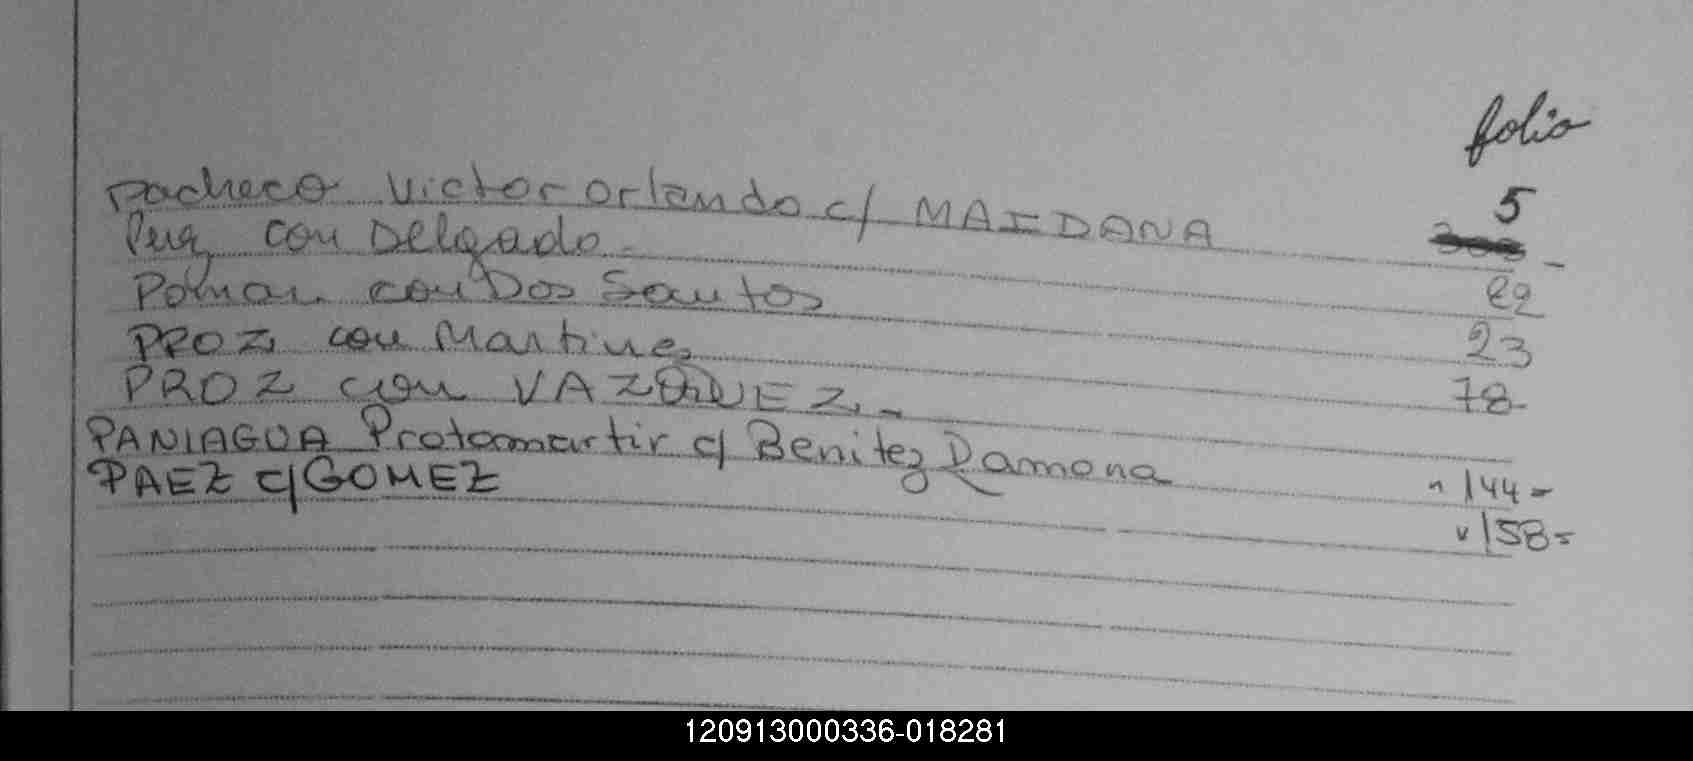 folio
Pacheco Victor Orlando c/ MAIDANA 5
con Delgado - -
Poman con Dos Santos 22
PROZ con Martinez 23
PROZ con VAZQUEZ.- 78
PANIAGUA Protomartir c/ Benitez Ramona " 144-
PAEZ c/ GOMEZ v 158=
120913000336-018281